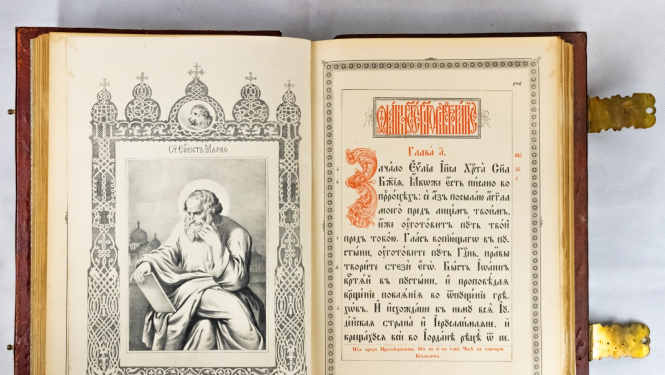 С҃т. Єѵ҃листъ Марко
Ѿ ма́рка ст҃о́е бл҃говѣствова́нїе
Глава̀ а҃.
Зача́ло Єѵ҃лїа І҆и҃са Хрⷭ҇та̀ Сн҃а
Бж҃їѧ, Ꙗ҆́коже є҆́сть пи́сано во
прⷪ҇ро́цѣхъ: сѐ а҆́зъ посыла́ю а҆́гг҃ла
моего̀ пред̾ лице́мъ твои́мъ,
и҆́же ᲂу҆гото́витъ пꙋ́ть тво́й
пред̾ тобо́ю. Гла́съ вопїю́щагѡ въ пꙋ-
сты́ни, ᲂу҆гото́вите пꙋ́ть Гдⷭ҇ень, пра̑вы
твори́те стєзѝ є҆гѡ̀. Бы́сть І҆ѡа́ннъ
крⷭ҇тѧ́й въ пꙋсты́ни, и҆ проповѣ́даѧ
крⷭ҇ще́нїе покаѧ́нїѧ во ѿпꙋще́нїе грѣ-
хѡ́въ. И҆ и҆схожда́ше къ немꙋ̀ всѧ̀ І҆ꙋ-
де́йскаѧ страна̀ и҆ І҆ерⷭ҇ли́млѧне, и҆
креща́хꙋсѧ всѝ во І҆ѻрда́нѣ рѣцѣ̀ ѿ не-